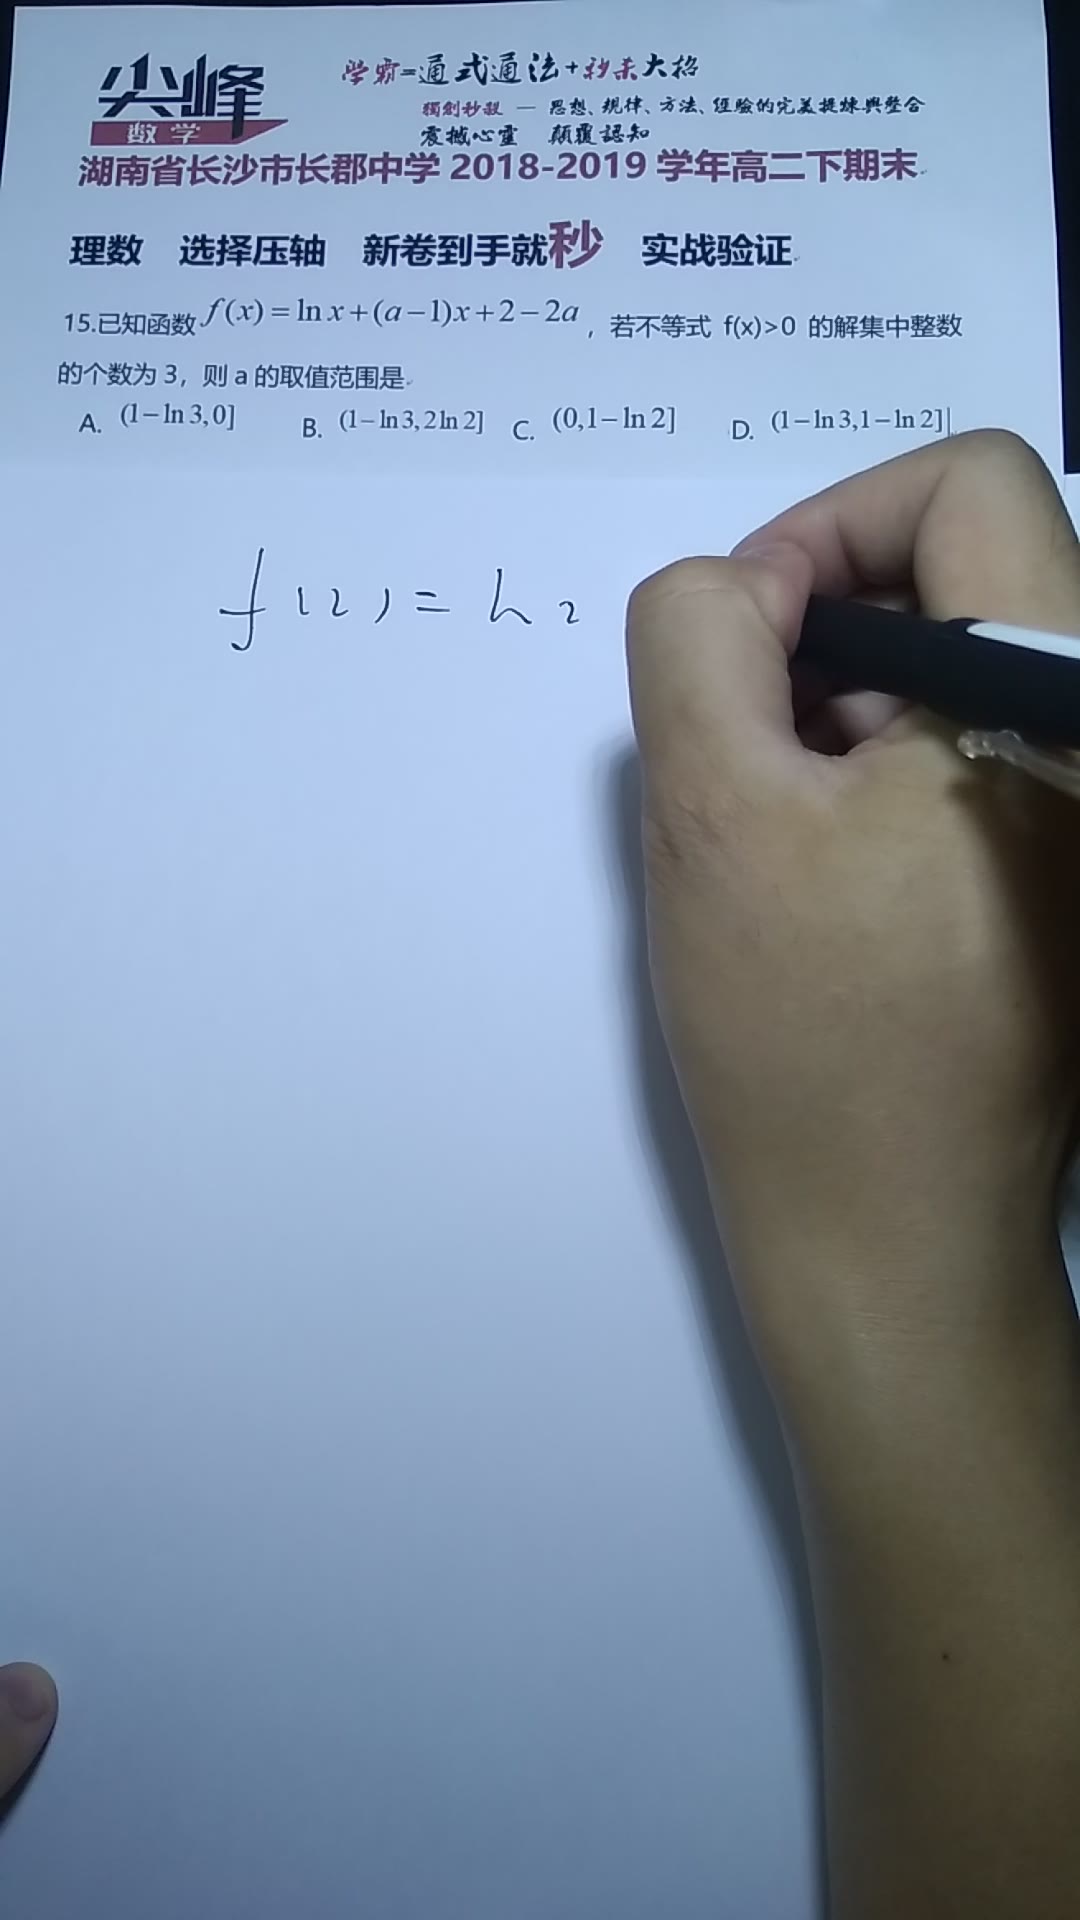 尖峰
数学
学霸=通式通法+秒杀大招
獨創秒殺 — 思想、規律、方法、經驗的完美提煉與整合
震撼心靈 顛覆認知
湖南省长沙市长郡中学 2018-2019 学年高二下期末
理数 选择压轴 新卷到手就秒 实战验证
15.已知函数 f(x)=ln x+(a-1)x+2-2a ，若不等式 f(x)>0 的解集中整数
的个数为 3，则 a 的取值范围是
A. (1-ln 3,0] B. (1-ln 3,2ln 2] C. (0,1-ln 2] D. (1-ln 3,1-ln 2]
f(2)=ln 2